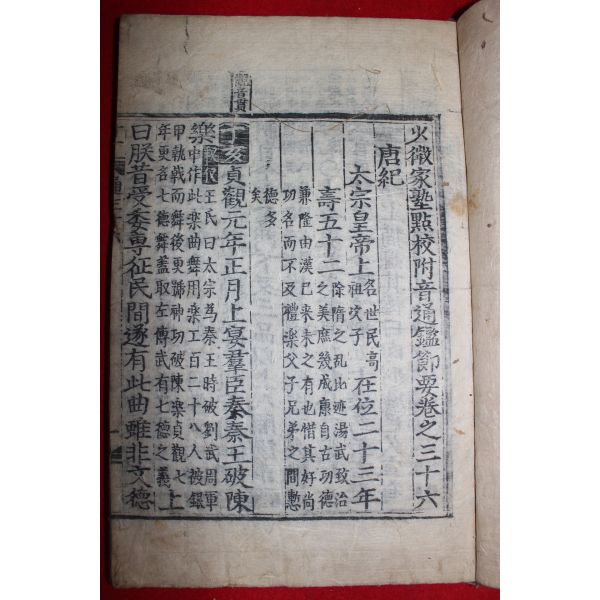 少微家塾點校附音通鑑節要卷之三十六
唐紀
太宗皇帝上 名世民高祖次子 在位二十三年
壽五十二 除隋之亂比迹湯武致治之美庶幾成康自古功德
兼隆由漢已来未之有也惜其好尚功名而不及禮樂父子兄弟之間慙
德多矣
丁亥 貞觀元年正月上宴羣臣奏秦王破陳
樂 王氏曰太宗為秦王時破劉武周軍中作此樂曲舞用樂工百二十八人被銀
甲執戟而舞後更號神功破陳樂貞觀七年更名七德舞盖取左傳武有七德之義 上
曰朕昔受委專征民間遂有此曲雖非文德
音貫